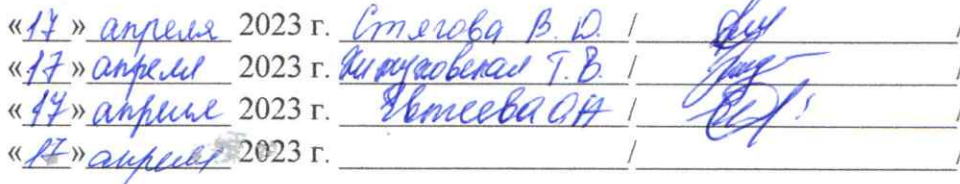 «17» апреля 2023 г. Стягова В. О. / /
«17» апреля 2023 г. Т. В. / /
«17» апреля 2023 г. Евтеева О Н / /
«17» апреля 2023 г. / /